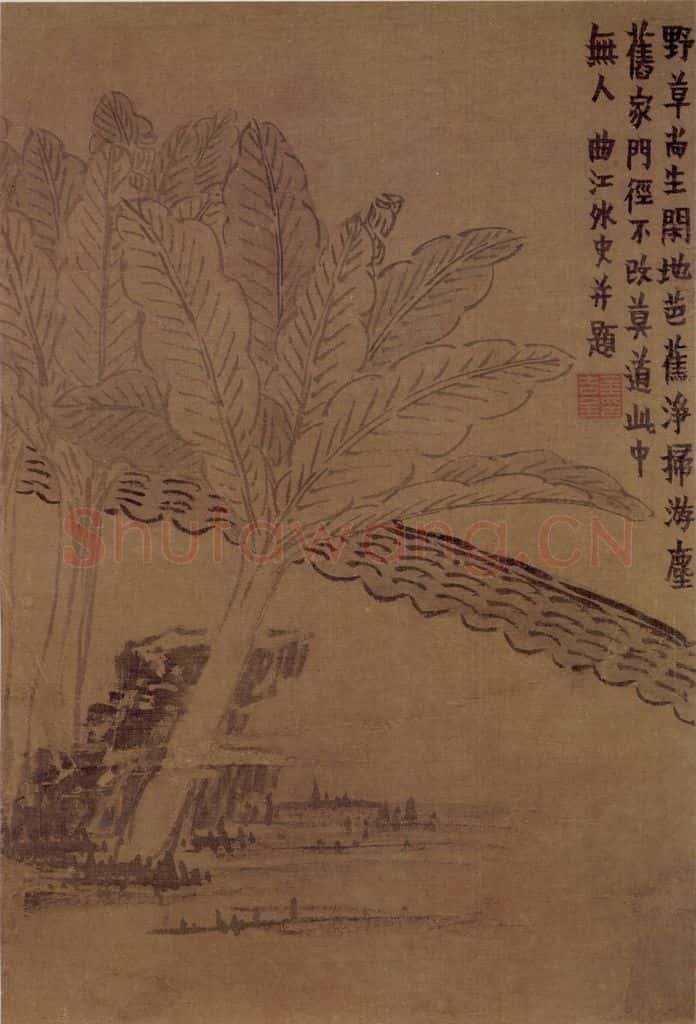 野草尚生閑地芭蕉淨掃游塵
舊家門徑不改莫道此中
無人 曲江外史并題
Shufawang.CN